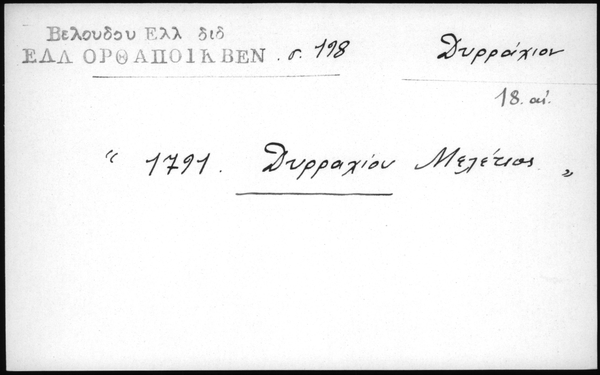 Βελουδου Ελλ διδ
ΕΛΛ ΟΡΘΑΠΟΙΚ ΒΕΝ . σ. 198
Δυρράχιον
18. αἰ.
“ 1791. Δυρραχίου Μελέτιος „